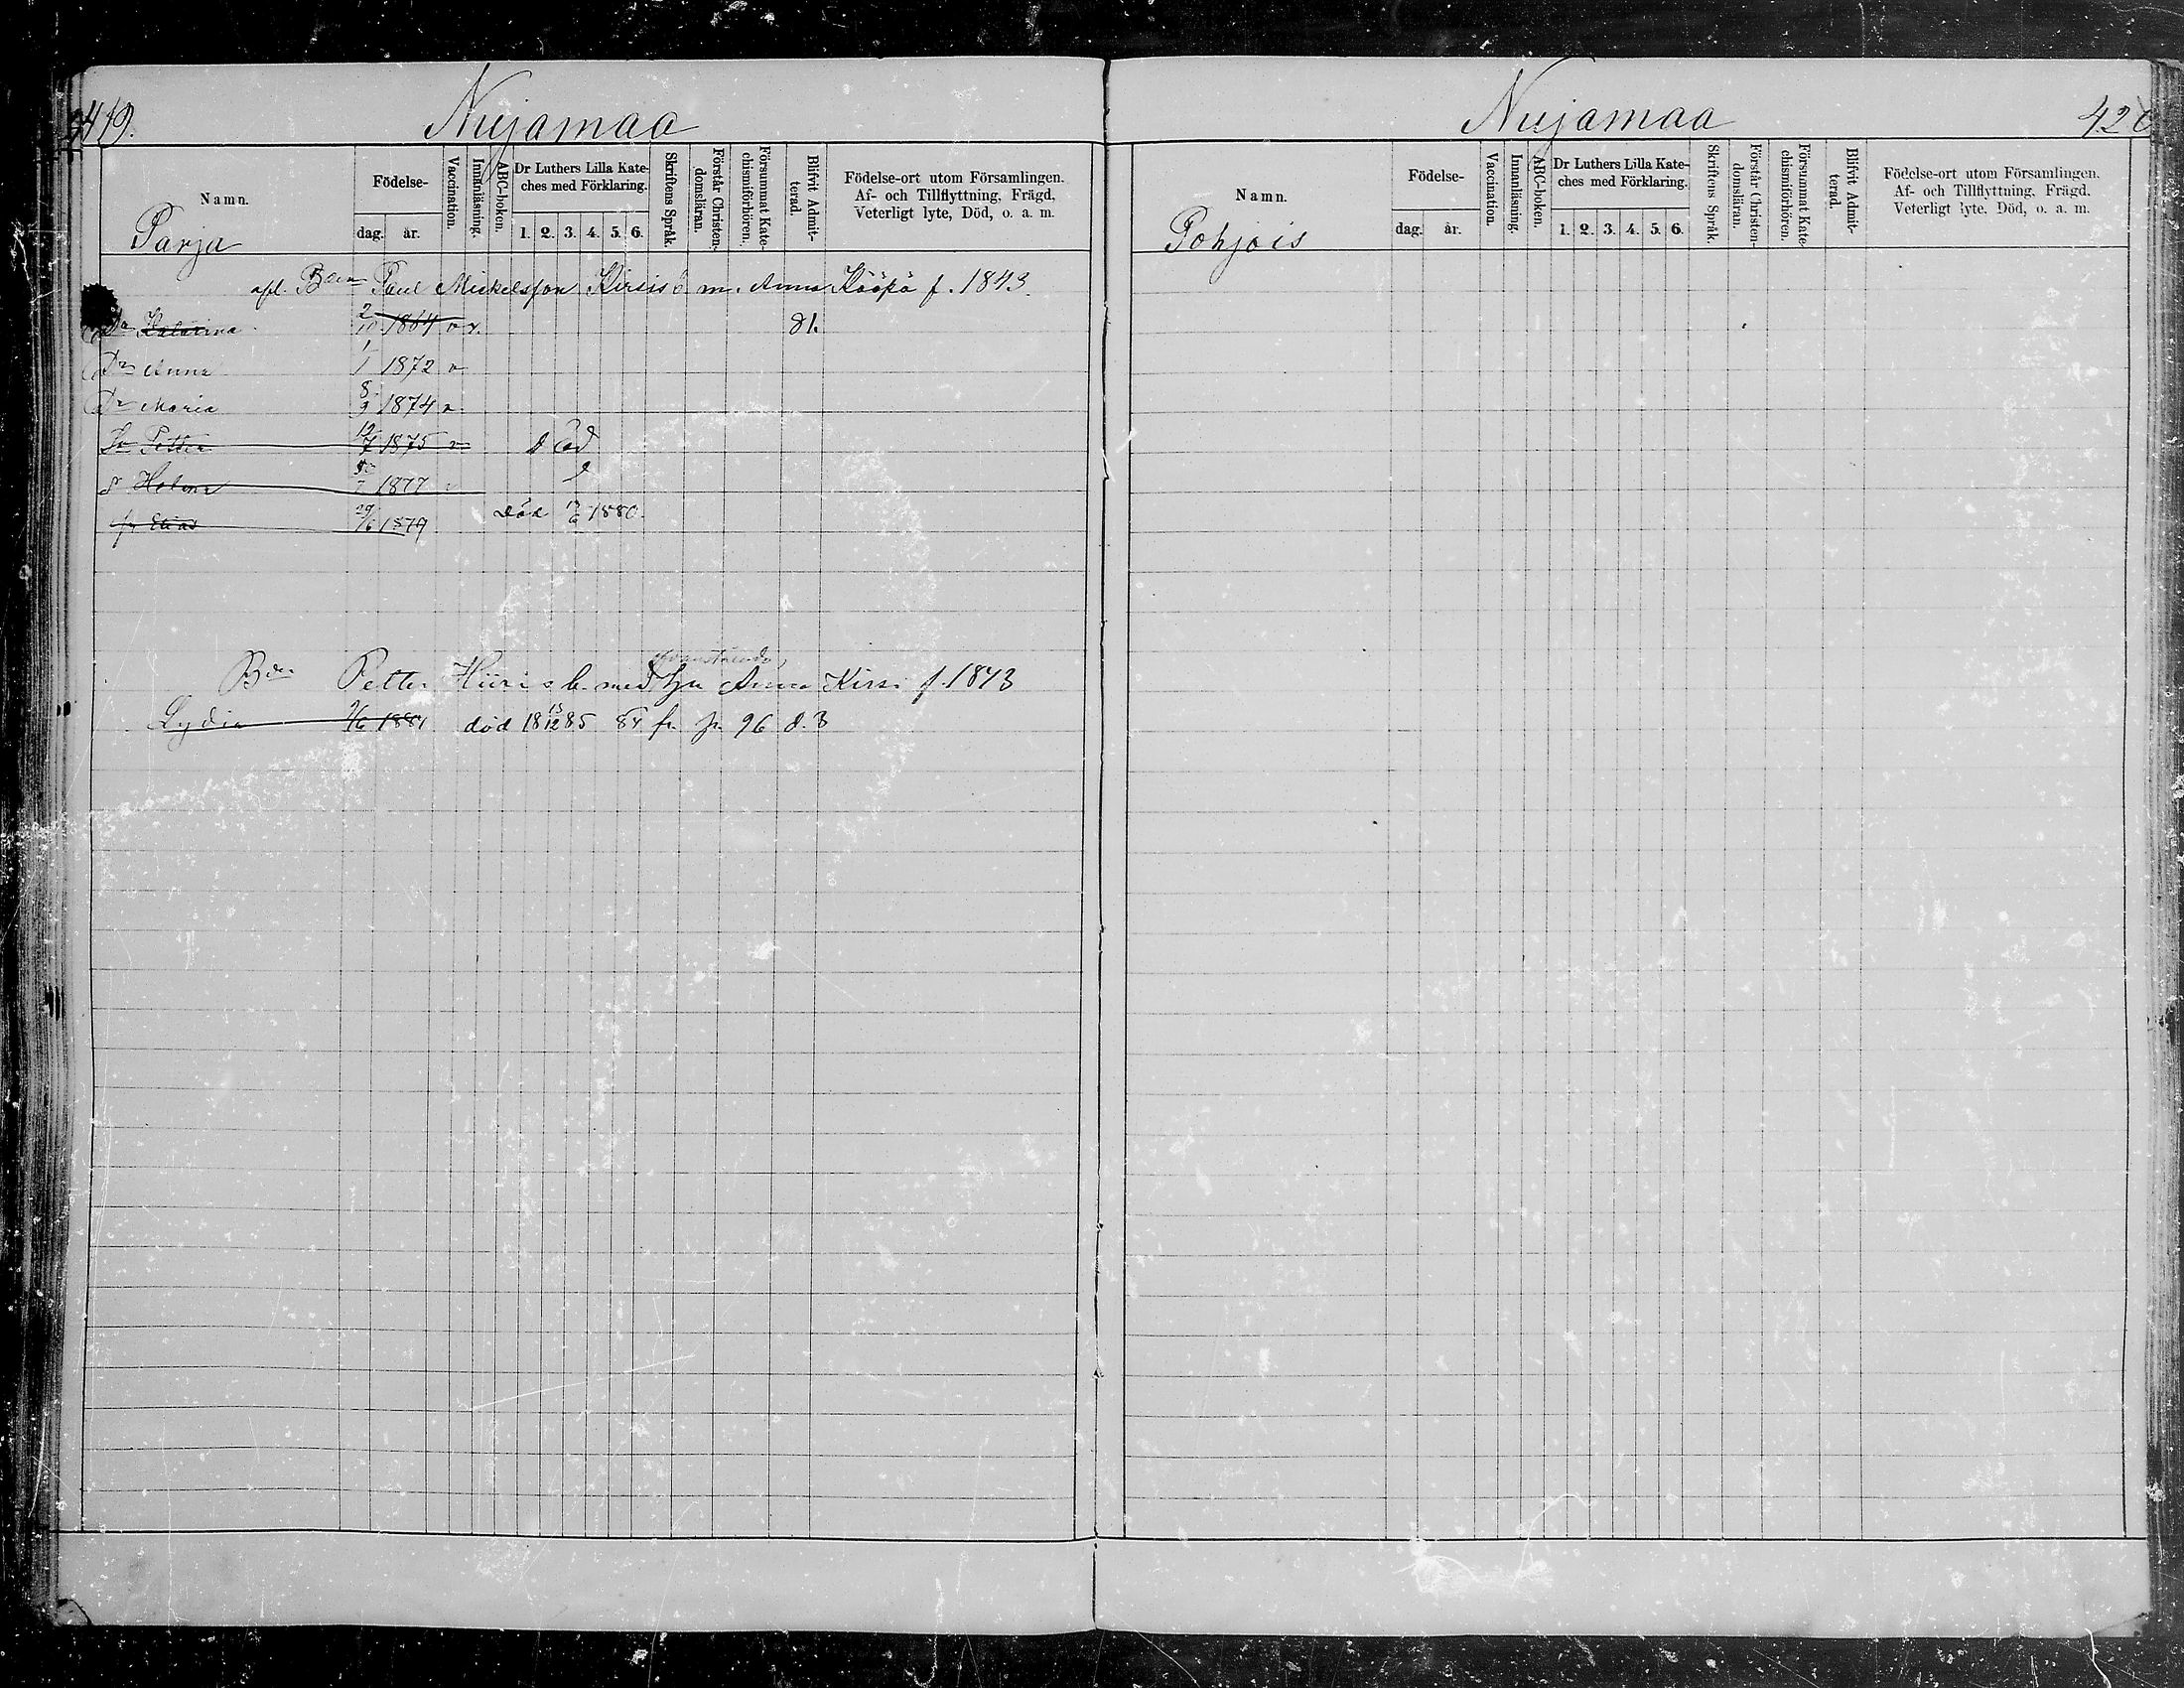 419.
Nuijamaa
Namn.
Födelse-
dag.
år.
Vaccination.
Innanläsning.
ABC-boken.
Dr Luthers Lilla Kate-
ches med Förklaring.
1. 2. 3. 4. 5. 6.
Skriftens Språk.
Förstår Christen-
domsläran.
Försummat Kate-
chismiförhören.
Blifvit Admit-
terad.
Födelse-ort utom Församlingen.
Af- och Tillflyttning, Frägd,
Veterligt lyte, Död, o. a. m.
Parja
afl. Bden Paul Mickelsson Kirsis b. m. Anna Kääpä f. 1843.
Dr Katarina 2/10 1864 v. 81.
Dr Anna 1/1 1872 v
Dr Maria 8/9 1874 v.
Sn Petter 12/7 1875 v död
Dr Helena 1877
sn Elias 29/6 1879 död 1880.
Bden Petter Hiiri s b. med hu Anna Kirsi f. 1843
Lydia 9/6 1881 död 18 15/12 85 84 fr. fr. 96 d. B
Nuijamaa
420
Namn.
Födelse-
dag.
år.
Vaccination.
Innanläsning.
ABC-boken.
Dr Luthers Lilla Kate-
ches med Förklaring.
1. 2. 3. 4. 5. 6.
Skriftens Språk.
Förstår Christen-
domsläran.
Försummat Kate-
chismiförhören.
Blifvit Admit-
terad.
Födelse-ort utom Församlingen.
Af- och Tillflyttning, Frägd.
Veterligt lyte. Död, o. a. m.
Pohjois